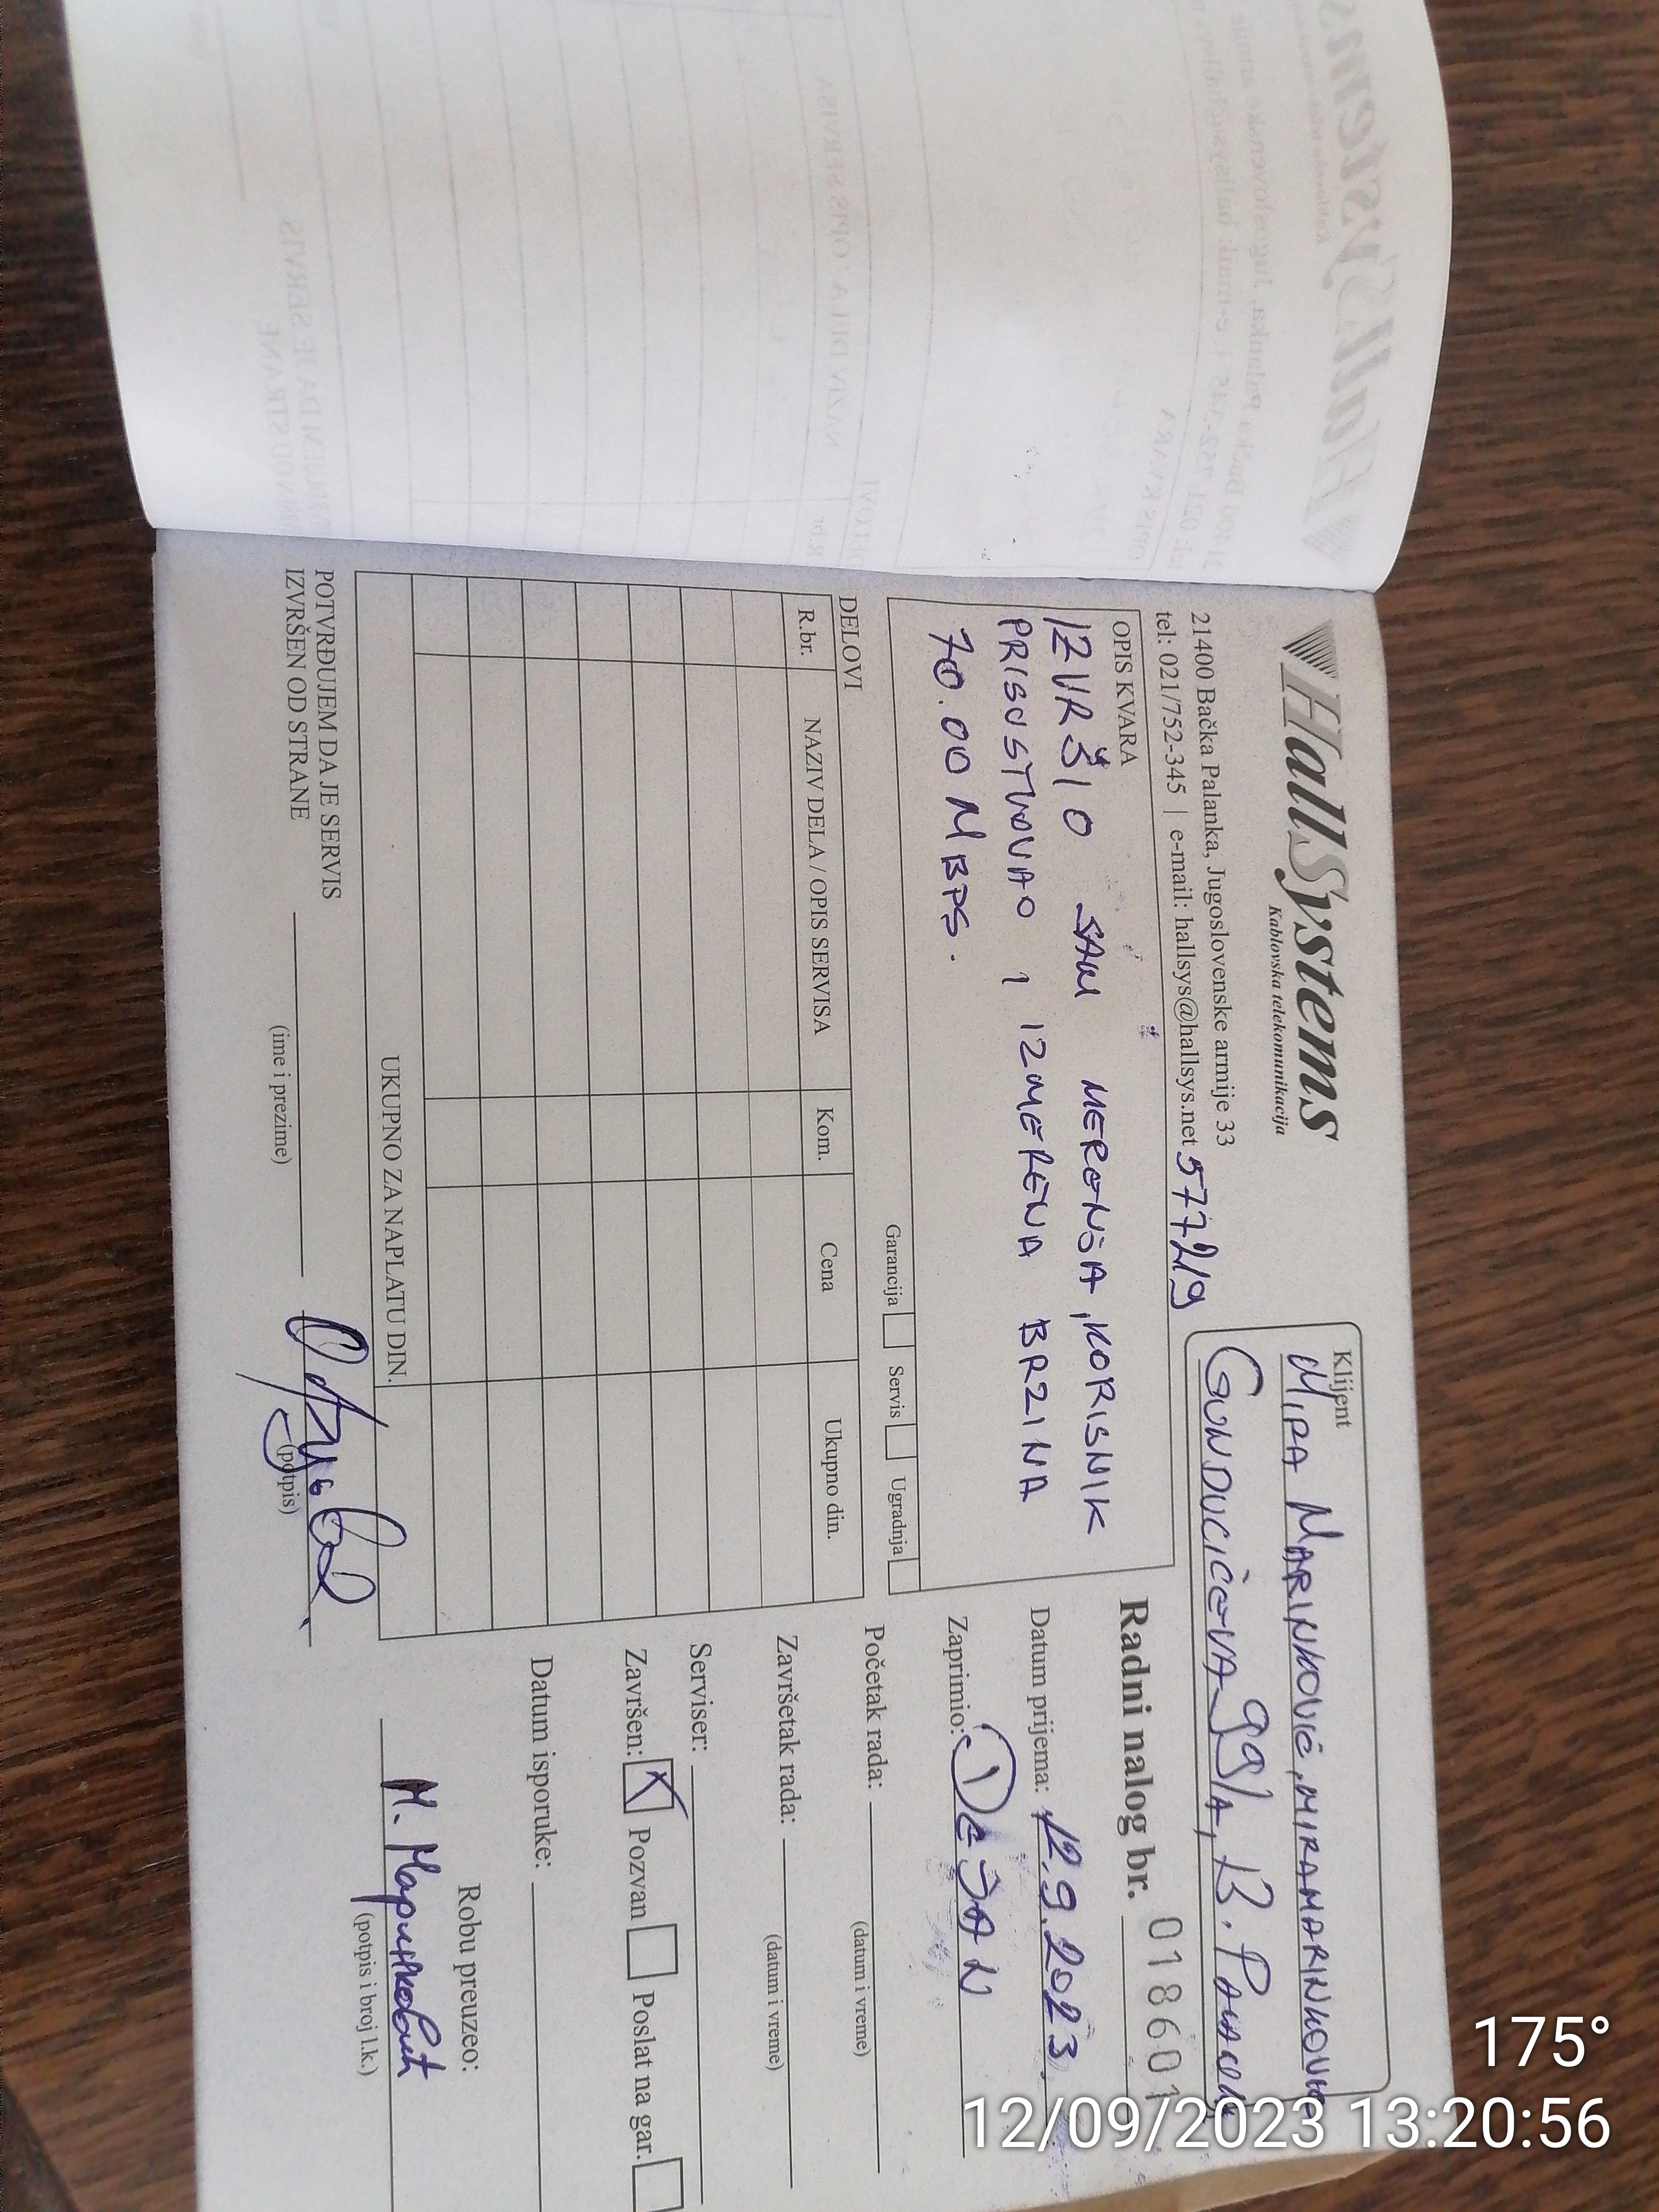 HallSystems
Kablovska telekomunikacija
21400 Bačka Palanka, Jugoslovenske armije 33
tel: 021/752-345 | e-mail: hallsys@hallsys.net 577219
Klijent
MIRA MARINKOVIĆ, MIRAMARINKOVIĆ
GUNDULIĆEVA 99/A, B.
OPIS KVARA
IZVRŠIO SAM MERENJA, KORISNIK
PRISUSTVOVAO I IZMERENA BRZINA
70.00 MBPS.
Garancija Servis Ugradnja
Radni nalog br. 018601
Datum prijema: 12.9.2023.
Zaprimio: DEJAN
Početak rada:
(datum i vreme)
Završetak rada:
(datum i vreme)
Serviser:
Završen: Pozvan Poslat na gar.
Datum isporuke:
Robu preuzeo:
М. Маринковић
(potpis i broj l.k.)
DELOVI
R.br. NAZIV DELA / OPIS SERVISA Kom. Cena Ukupno din.
UKUPNO ZA NAPLATU DIN.
POTVRĐUJEM DA JE SERVIS
IZVRŠEN OD STRANE
(ime i prezime)
(potpis)
175°
12/09/2023 13:20:56